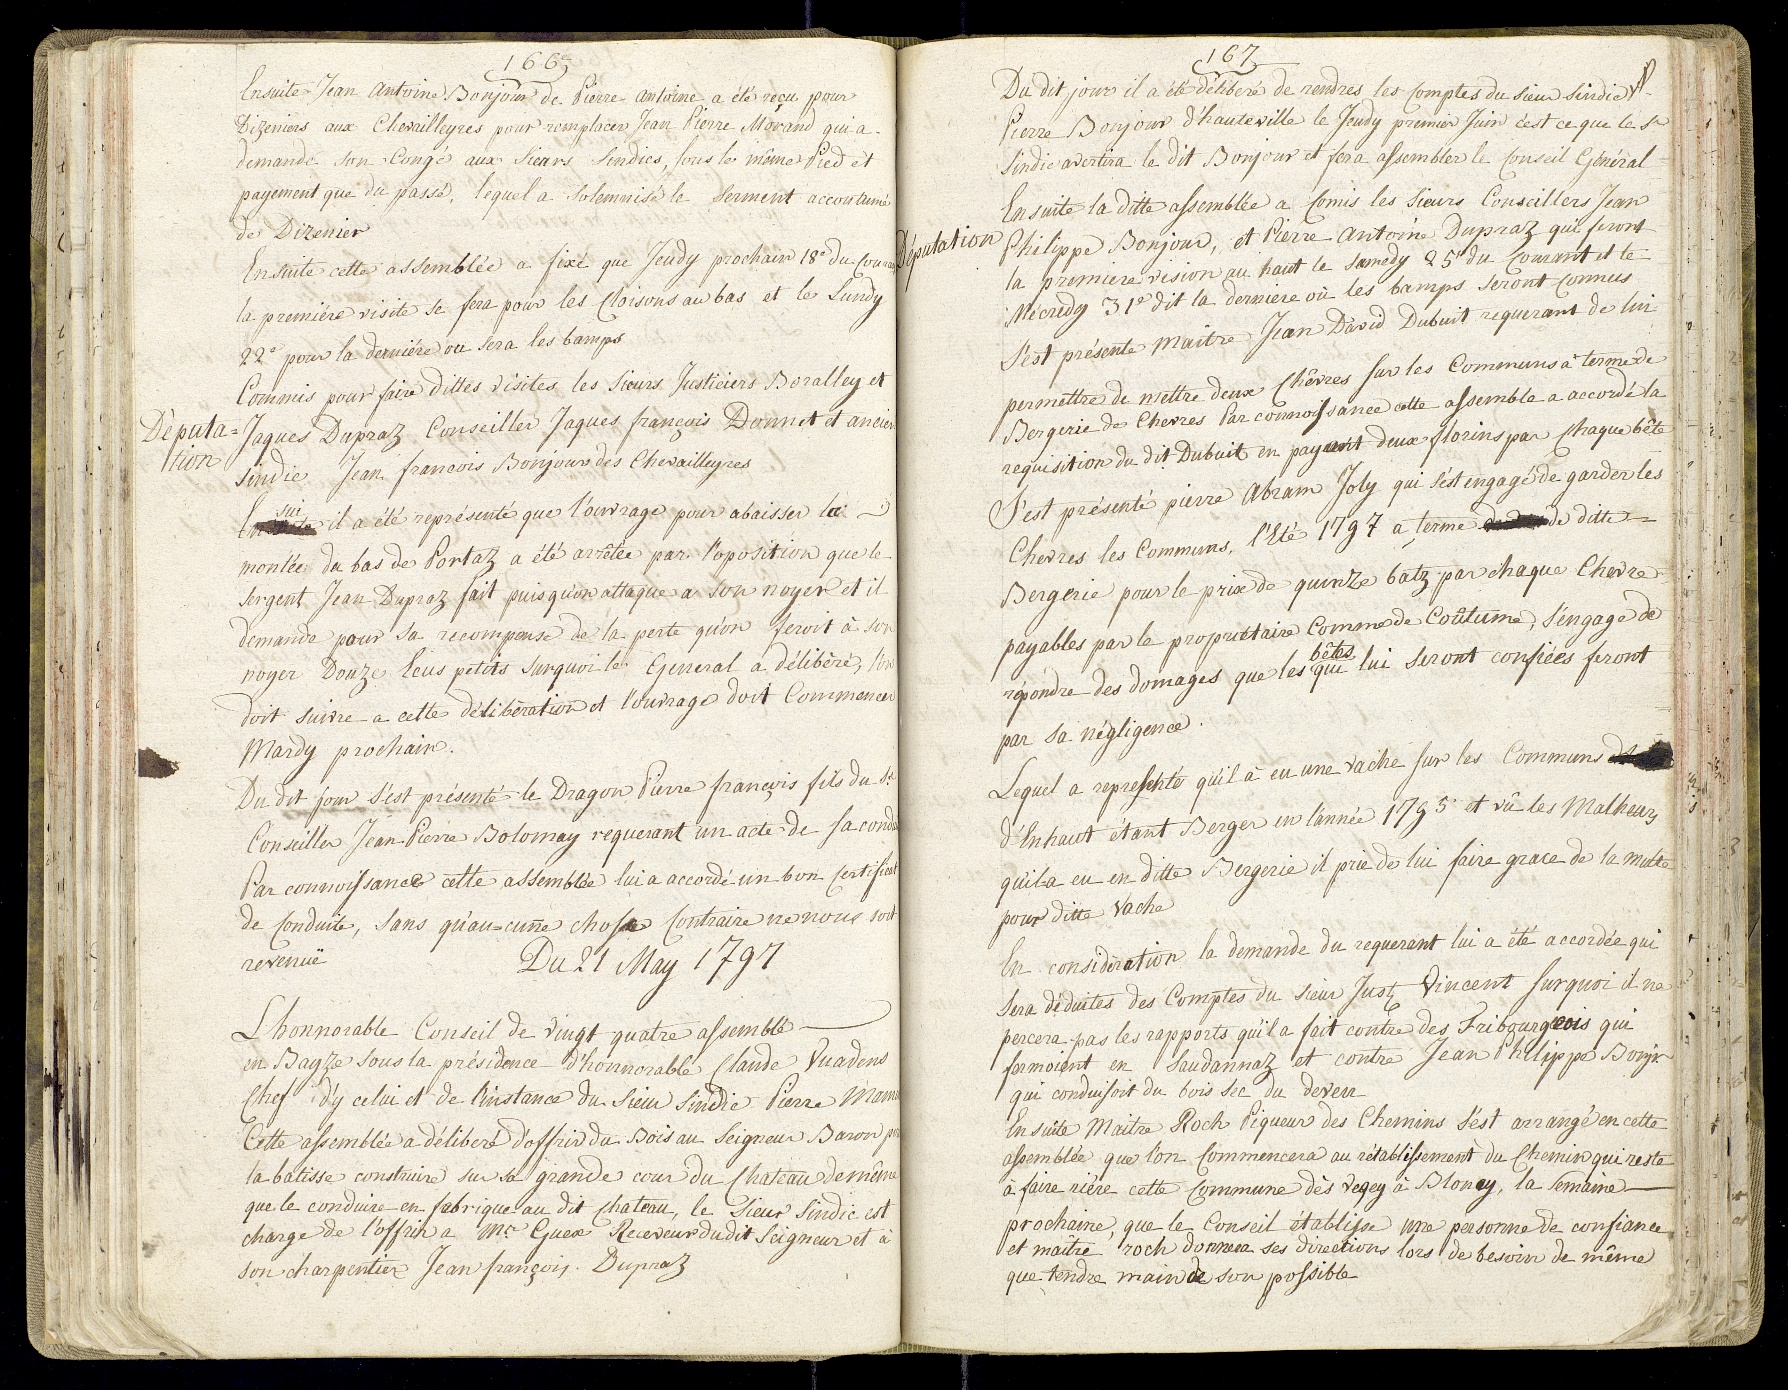 166
Ensuite Jean Antoine Bonjour de Pierre Antoine a été reçu pour
Dizeniers aux Chevailleyres pour remplacer Jean Pierre Morand qui a
demandé son Congé aux Sieurs Sindics, sous le même Pied et
payement que du passé, lequel a solemnisé le serment accoutumé
de Dizenier
Ensuite cette assemblée a fixé que Jeudy prochain 18e du Courant
la premiére visite se fera pour les Cloisons au bas et le Lundy
22e pour la derniére ou sera les bamps
Commis pour faire dittes visites les Sieurs Justiciers Boralley et
Députa=
tion
Jaques Dupraz Conseiller Jaques françois Donnet et ancien
Sindic Jean francois Bonjour des Chevailleyres
sui
En il a été représenté que l'ouvrage pour abaisser la
montée du bas de Portaz a été arrêtée par l'oposition que le
Sergent Jean Dupraz fait puisqu'on attaque a son noyer et il
demande pour sa recompense de la perte qu'on feroit à son
noyer Douze Ecus petits surquoi le General a délibéré, l'on
doit suivre a cette délibération et l'ouvrage doit Commencer
Mardy prochain.
Du dit jour s'est présenté le Dragon Pierre françois fils du Sr
Conseiller Jean Pierre Bolomay requerant un acte de sa condu
Par connoissance cette assemblée lui a accordé un bon Certificat
de Conduite, sans qu'au=cune chose Contraire ne nous soit
revenuë
Du 21 May 1797
L'honnorable Conseil de Vingt quatre assemblé
en Bagze sous la présidence d'honnorable Claude Vuadens
Chef d'y celui et de l'instance du Sieur Sindic Pierre Mamin
Cette assemblée a délibéré d'offrir du Bois au Seigneur Baron pr
la batisse construire sur sa grande cour du Chateau de même
que le conduire en fabrique au dit Chateau, le Sieur Sindic est
charge de l'offrir a Mr Guex Receveur dudit Seigneur et à
son charpentier Jean françois Dupraz
167
Du dit jour il a été délibéré de rendres les Comptes du Sieur Sindic
Pierre Bonjour d'hauteville le Jeudy premier Juin c'est ce que le Sr
Sindic avertira le dit Bonjour et fera assembler le Conseil Général
Députation
Ensuite la ditte assemblée a Comis les Sieurs Conseillers Jean
Philippe Bonjour, et Pierre Antoine Dupraz qui feront
la premiere vision au haut le Samedy 25e du Courant et le
Mécredy 31e dit la derniere où les bamps seront connus
S'est présenté Maitre Jean David Dubuit requerant de lui
permettre de mettre deux Chêvres sur les Communs à terme de
Bergerie de Chevres Par connoissance cette assemble a accordé la
requisition du dit Dubuit en payant deux florins par Chaque bête
S'est présenté pierre Abram Joly qui s'est engagé de garder les
Chevres les Communs, l'Eté 1797 a terme de ditte
Bergerie pour le prix de quinze batz par chaque Chevre
payables par le propriétaire Comme de Coûtume, s'engage de
bêtes
répondre des domages que les qui lui seront confiées feront
par sa négligence.
Lequel a representé qu'il à eu une vache sur les Communs
d'Enhaut étant Berger en l'année 1795 et vû les Malheurs
qu'il a eu en ditte Bergerie il prie de lui faire grace de la multe
pour ditte Vache
En considération la demande du requerant lui a été accordée qui
sera déduites des Comptes du sieur Just Vincent surquoi il ne
percera pas les rapports qu'il a fait contre des Fribourgeois qui
fermoient en Saudannaz et contre Jean Philippe Bonjr
qui conduisoit du bois sec du deven
Ensuite Maitre Roch Piqueur des Chemins s'est arrangé en cette
assemblée que l'on Commencera au rétablissement du Chemin qui reste
à faire riére cette Commune dès Vegey à Blonay, la semaine
prochaine, que le Conseil établisse une personne de confiance
et maître roch donnera ses directions lors de besoin de même
que tendre main de son possible